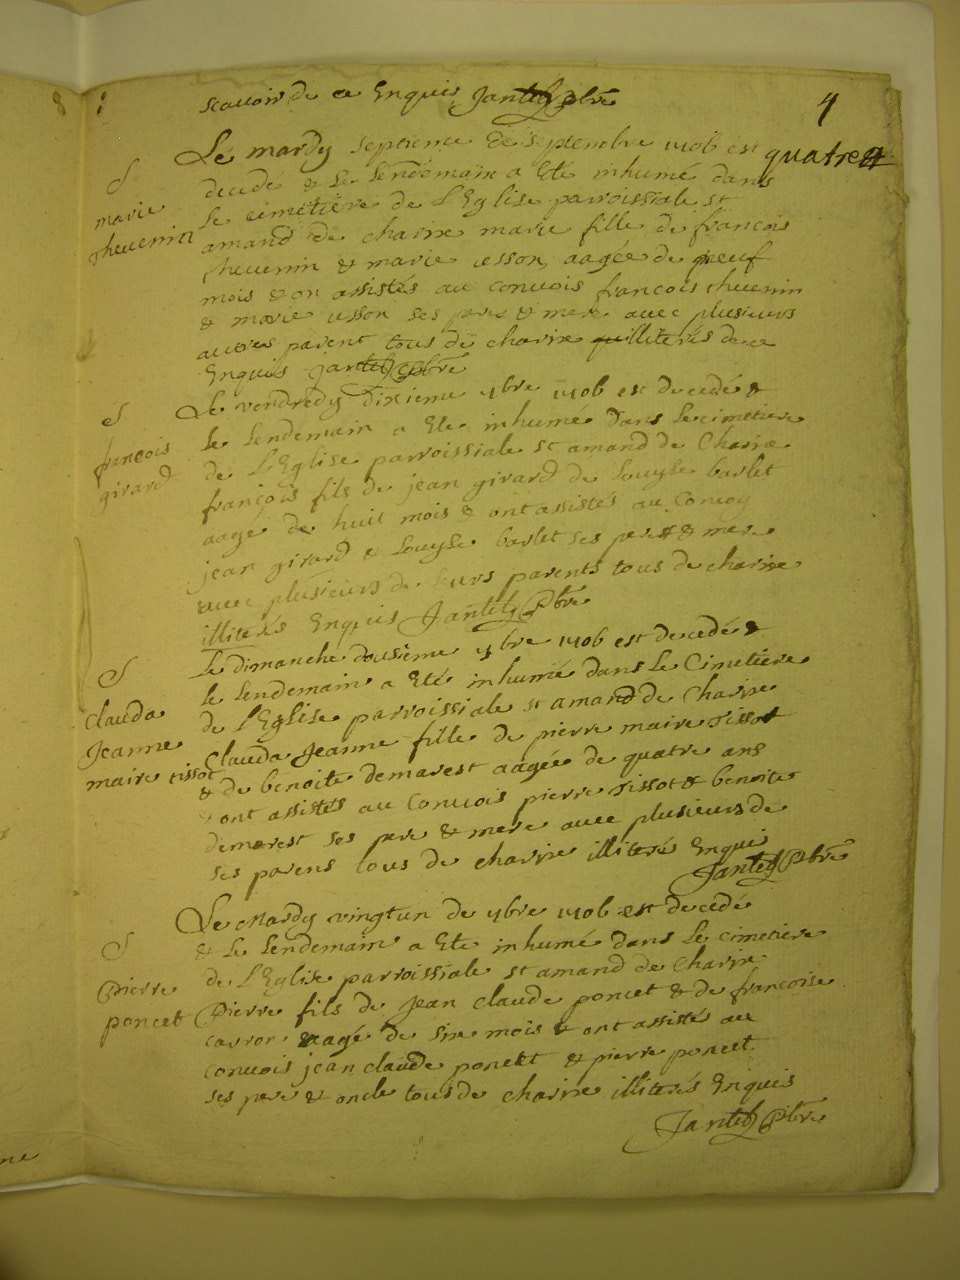 scauoir de ce Enquis Jantet pbre
4
quatre
Le mardy septieme de septembre 1706 est
S
marie
thevenin
decedé & le lendemain a Ete inhumé dans
le cimetiere de L'Eglise parroissiale st
amand de charix marie fille de françois
thevenin & marie usson, aagée de neuf
mois & on assistés au convois francois thevenin
& marie usson ses pere & mere avec plusieurs
autres parent tous de charix illiterés de ce
Enquis Jantet pbre
Le vendredy dixieme 7bre 1706 est decedé &
S
francois
girard
le lendemain a Ete inhumé dans le cimetiere
de L'Eglise parroissiale st amand de Charix
françois fils de jean girard de Louyse barlet
aagé de huit mois & ont assistés au Convoy
jean girard & Louyse barlet ses pere & mere
avec plusieurs de leurs parents tous de charix
illiterés Enquis Jantet Pbre
Le dimanche dousieme 7bre 1706 est decedé &
S
Clauda
Jeanne
maire tissot
le lendemain a Eté inhumé dans Le Cimetiere
de l'Eglise parroissiale st amand de Charix
Clauda Jeanne fille de pierre maire tissot
& de benoite demarest aagée de quatre ans
ont assistés au Convois pierre tissot & benoite
demarest ses pere & mere avec plusieurs de
ses parens tous de charix illiterés Enquis
Jantet Pbre
Le Mardy vingtun de 7bre 1706 est decedé
S
pierre
poncet
& Le Lendemain a Ete inhumé dans Le cimetiere
de L'Eglise parroissiale st amand de Charix
Pierre fils de Jean Claude poncet & de françoise
cavron aagé de six mois & ont assisté au
convois jean claude poncet & pierre poncet
ses pere & oncle tous de charix illiterés Enquis
Jantet Pbre